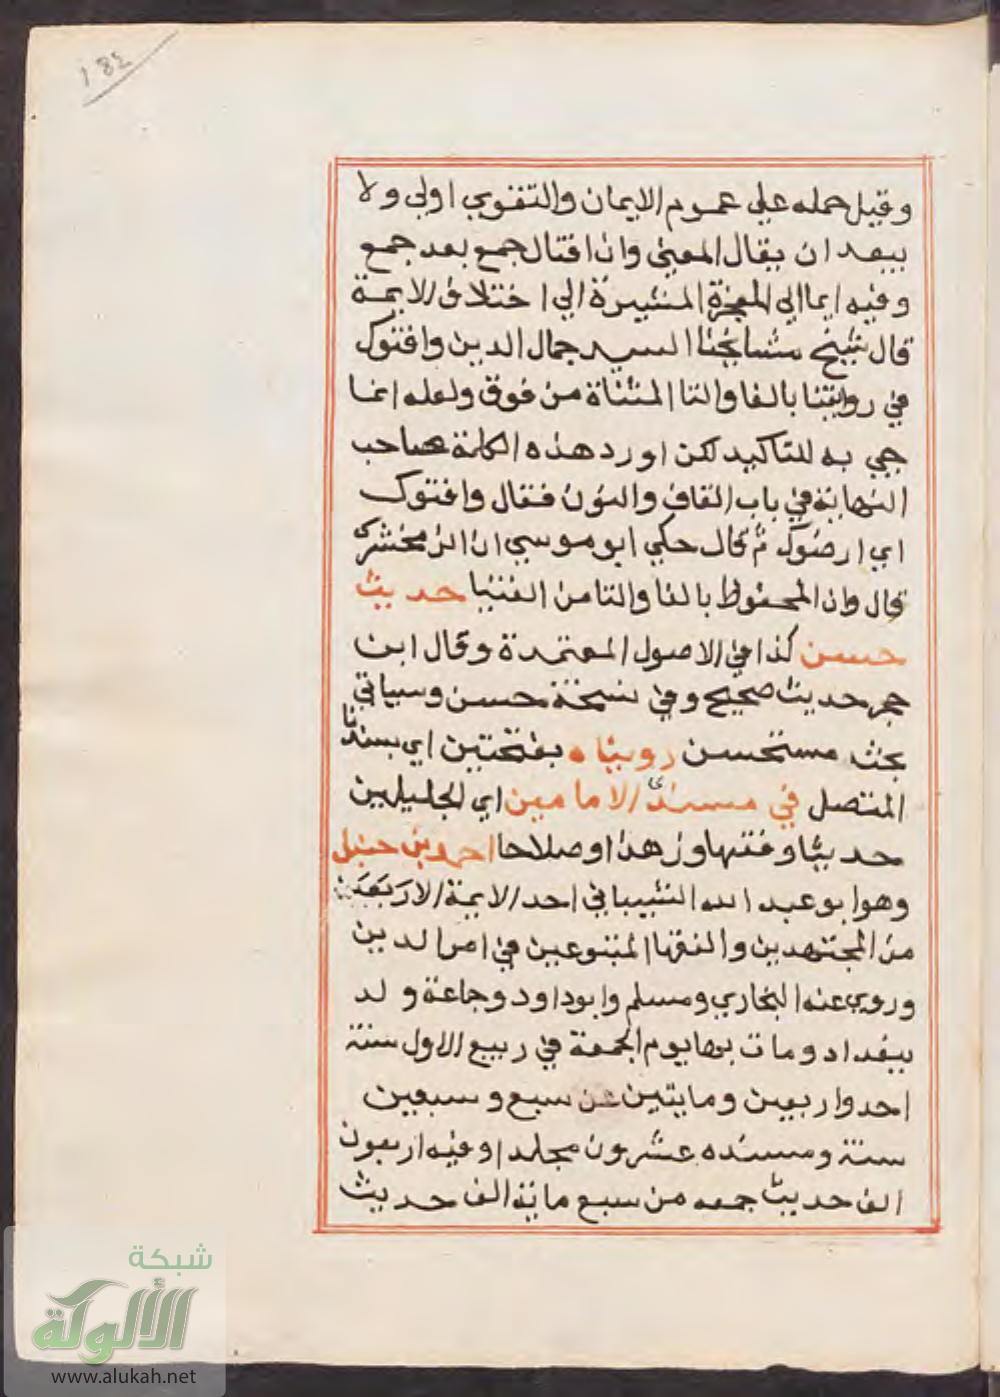 ١٨٤
وقيل حمله علي عموم الايمان والتقوي اولي ولا
يبعد ان يقال المعني وان افتال جمع بعد جمع
وفيه ايما الي المعجزة المشيرة الي اختلاف الايمة
قال شيخ مشايخنا السيد جمال الدين وافتوك
في روايتنا بالفا والتا المثناة من فوق ولعله انما
جي به للتاكيد لكن اورد هذه الكلمة صاحب
النهاية في باب القاف والنون فقال وافتوك
اي ارضوك ثم قال حكي ابو موسي ان الزمخشري
قال وان المحفوظ بالفا والتا من الفتيا حديث
حسن كذا في الاصول المعتمدة وقال ابن
حجر حديث صحيح وفي نسخة حسن وسياتي
بحث مستحسن رويناه بفتحتين اي بسندنا
المتصل في مسندي الامامين اي الجليلين
حديثا وفقها وزهدا وصلاحا احمد بن حنبل
وهو ابو عبد الله الشيباني احد الايمة الاربعين
من المجتهدين والفقها المتبوعين في امر الدين
وروي عنه البخاري ومسلم وابوداود وجماعة ولد
ببغداد ومات بها يوم الجمعة في ربيع الاول سنة
احد واربعين ومايتين عن سبع وسبعين
سنة ومسنده عشرون مجلدا وفيه اربعون
الف حديث جمعه من سبع ماية الف حديث
شبكة
الألوكة
www.alukah.net